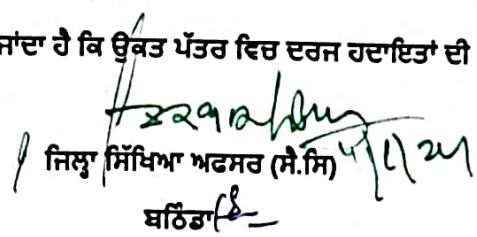 ਜਾਂਦਾ ਹੈ ਕਿ ਉਕਤ ਪੱਤਰ ਵਿਚ ਦਰਜ ਹਦਾਇਤਾਂ ਦੀ
ਜਿਲ੍ਹਾ ਸਿੱਖਿਆ ਅਫਸਰ (ਸੈ.ਸਿ)
ਬਠਿੰਡਾ